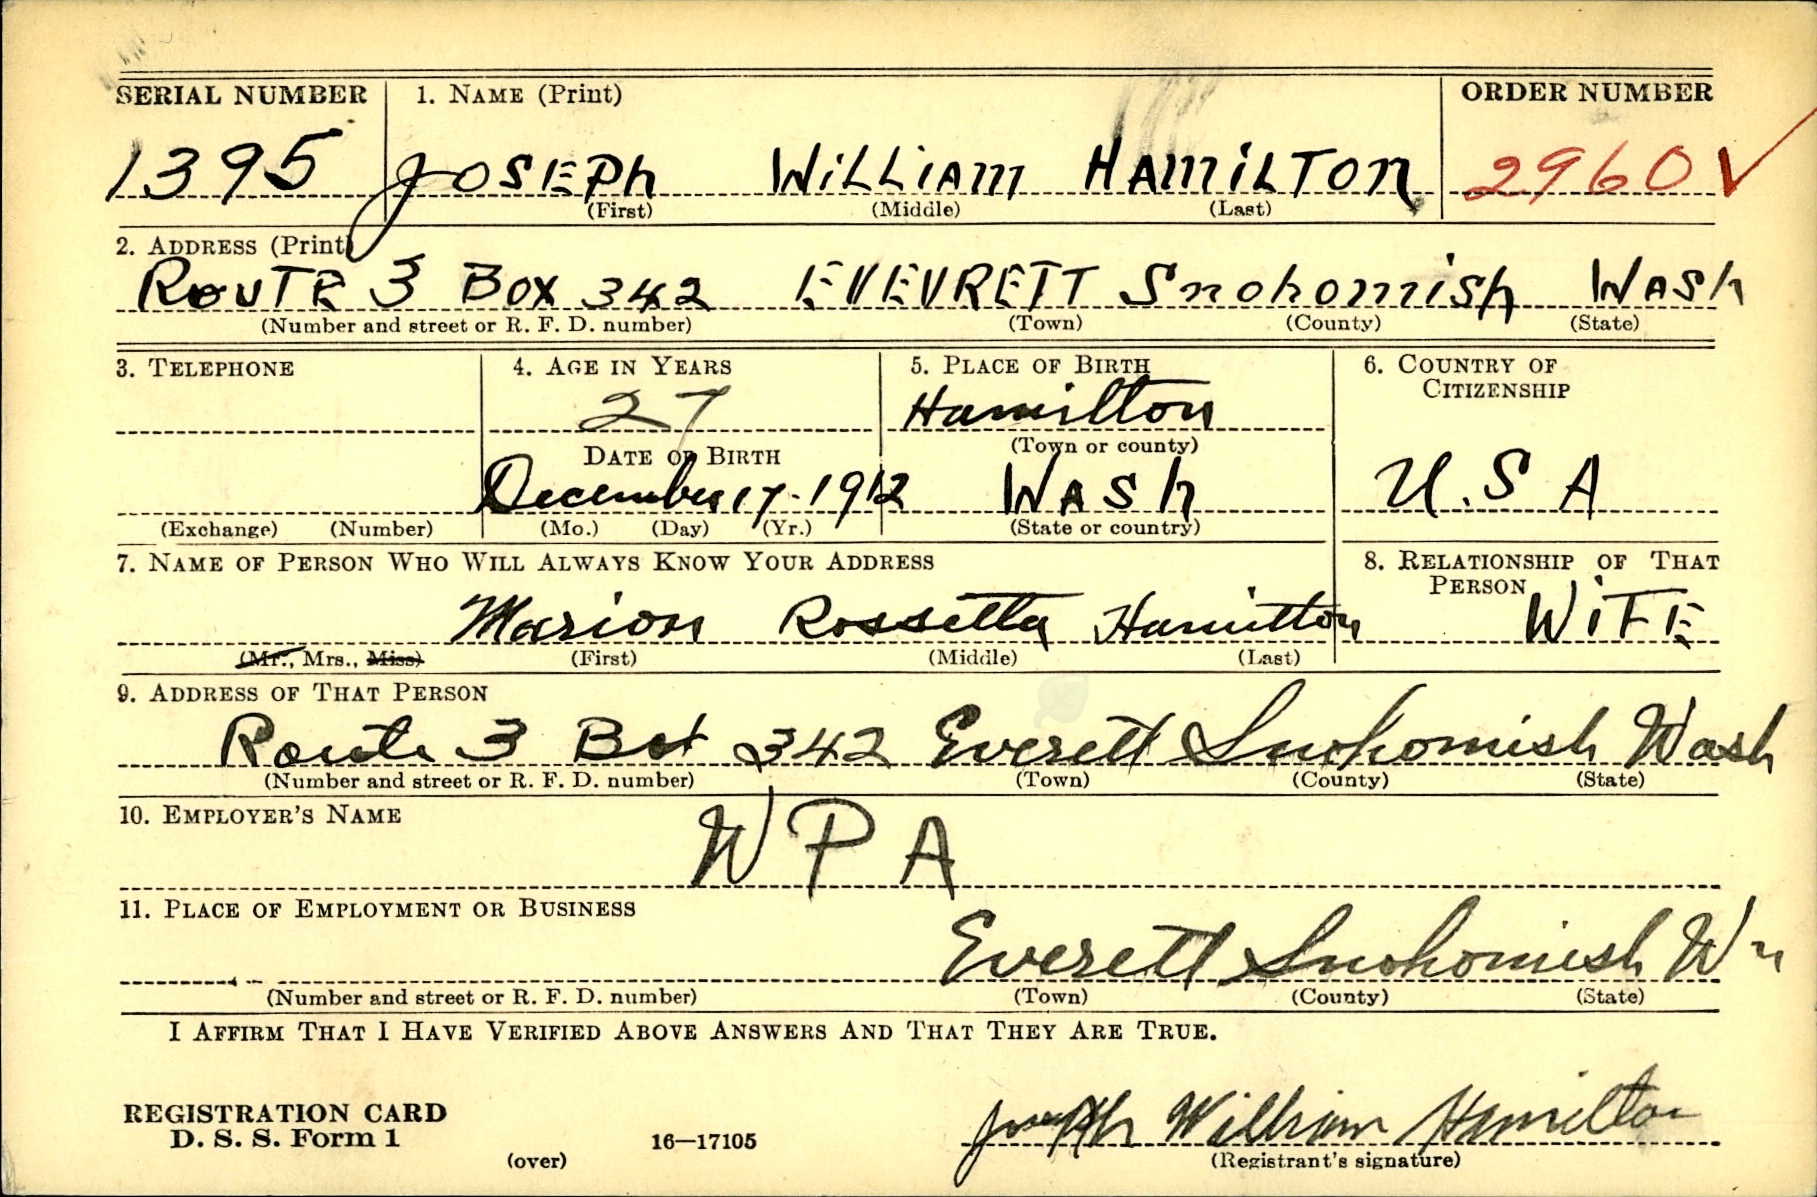 SERIAL NUMBER 1. NAME (Print) ORDER NUMBER
1395 JOSEPh WiLLiAM HAMiLTON 2960 ✓
(First) (Middle) (Last)
2. ADDRESS (Print)
ROUTE 3 BOX 342 EVEVRETT Snohomish WASh
(Number and street or R. F. D. number) (Town) (County) (State)
3. TELEPHONE 4. AGE IN YEARS 5. PLACE OF BIRTH 6. COUNTRY OF CITIZENSHIP
27 Hamilton
DATE OF BIRTH (Town or county)
December 17-1912 WASh U.S A
(Exchange) (Number) (Mo.) (Day) (Yr.) (State or country)
7. NAME OF PERSON WHO WILL ALWAYS KNOW YOUR ADDRESS 8. RELATIONSHIP OF THAT PERSON
Marion Rossetta Hamilton WiFE
(Mr., Mrs., Miss) (First) (Middle) (Last)
9. ADDRESS OF THAT PERSON
Route 3 Box 342 Everett Snohomish Wash
(Number and street or R. F. D. number) (Town) (County) (State)
10. EMPLOYER'S NAME
W P A
11. PLACE OF EMPLOYMENT OR BUSINESS
Everett Snohomish Wn
(Number and street or R. F. D. number) (Town) (County) (State)
I AFFIRM THAT I HAVE VERIFIED ABOVE ANSWERS AND THAT THEY ARE TRUE.
REGISTRATION CARD
D. S. S. Form 1 16—17105 Joseph William Hamilton
(over) (Registrant's signature)